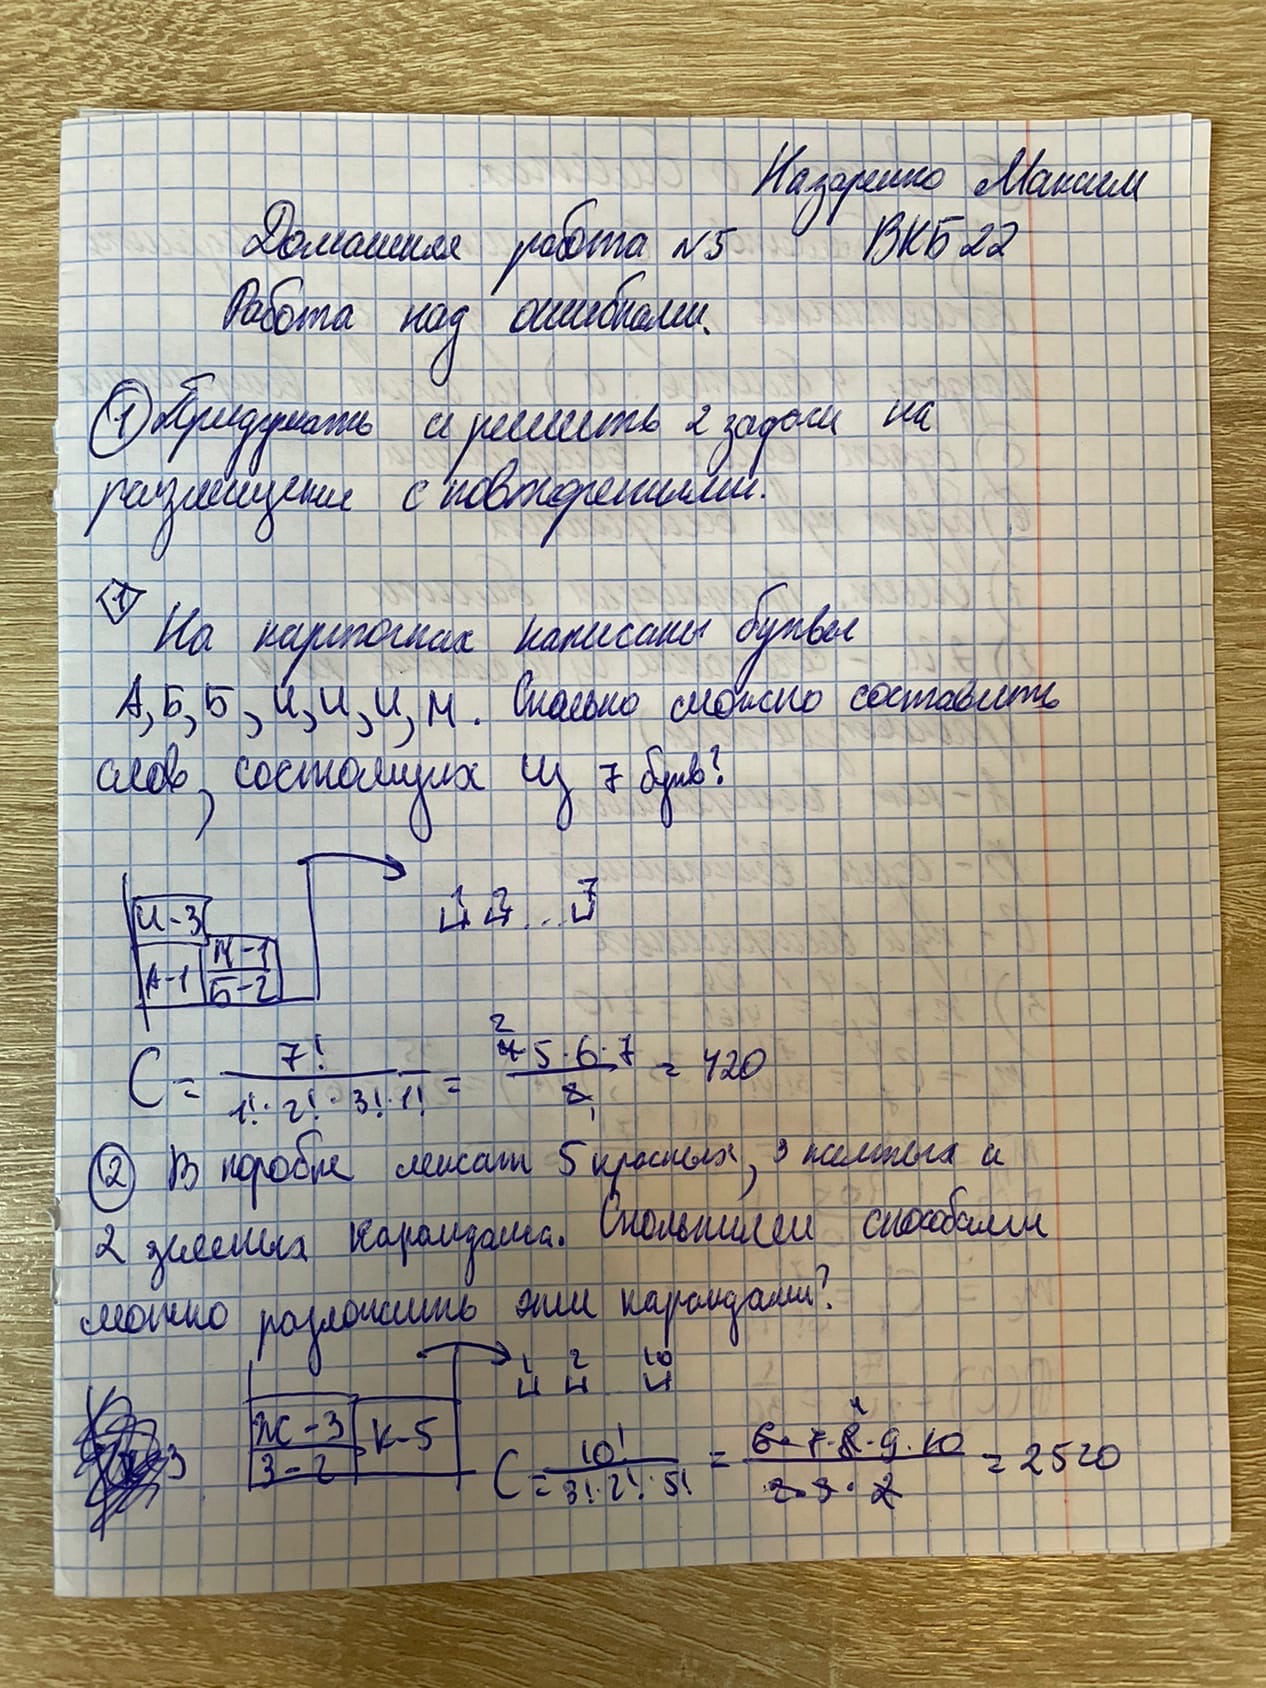 Назаренко Максим
Домашняя работа №5 ВКБ22
Работа над ошибками.
① Придумать и решить 2 задачи на
размещения с повторениями.
1 На карточках написаны буквы
А, Б, Б, И, И, И, М. Сколько можно составить
слов, состоящих из 7 букв?
1 2 ... 7
И-3
А-1 М-1
Б-2
C = 7! / (1! · 2! · 3! · 1!) = 4·5·6·7 / 2 = 420
② В коробке лежат 5 красных, 3 желтых и
2 зеленых карандаша. Сколькими способами
можно разложить эти карандаши?
1 2 10
Ж-3 К-5
З-2
C = 10! / (3! · 2! · 5!) = 6·7·8·9·10 / (2·3·2) = 2520